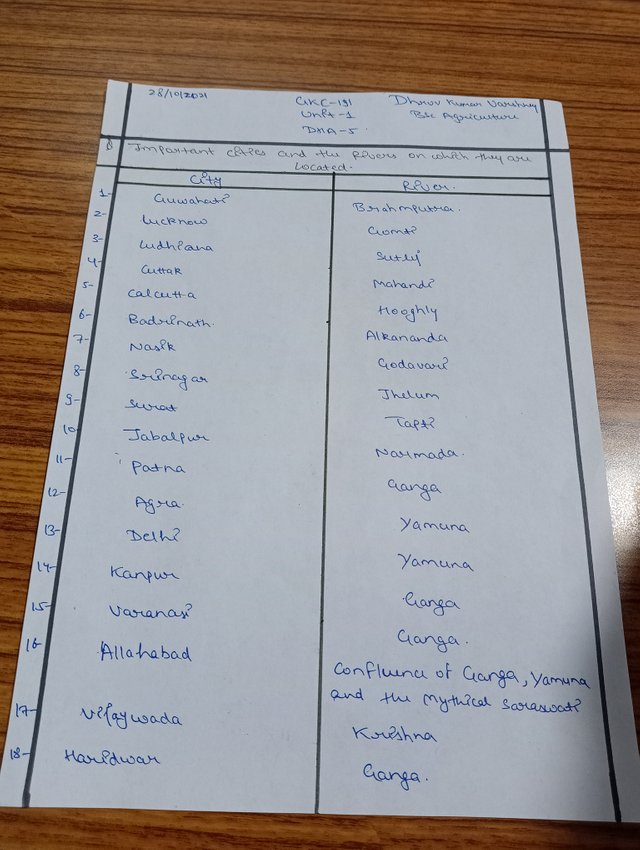 28/10/2021 GKC-191 Dhruv Kumar Varshney
Unit-1 BSc Agriculture
DHA-5
Important cities and the Rivers on which they are
Located.
City River.
1- Guwahati Brahmputra.
2- Lucknow Gomti
3- Ludhiana Sutlj
4- Cuttak Mahandi
5- Calcutta Hooghly
6- Badrinath. Alkananda
7- Nasik Godavari
8- Srinagar Jhelum
9- Surat Tapti
10- Jabalpur Narmada.
11- Patna Ganga
12- Agra. Yamuna
13- Delhi Yamuna
14- Kanpur Ganga
15- Varanasi Ganga.
16- Allahabad Confluence of Ganga, Yamuna
and the Mythical Saraswati
17- Vijaywada Krishna
18- Haridwar Ganga.